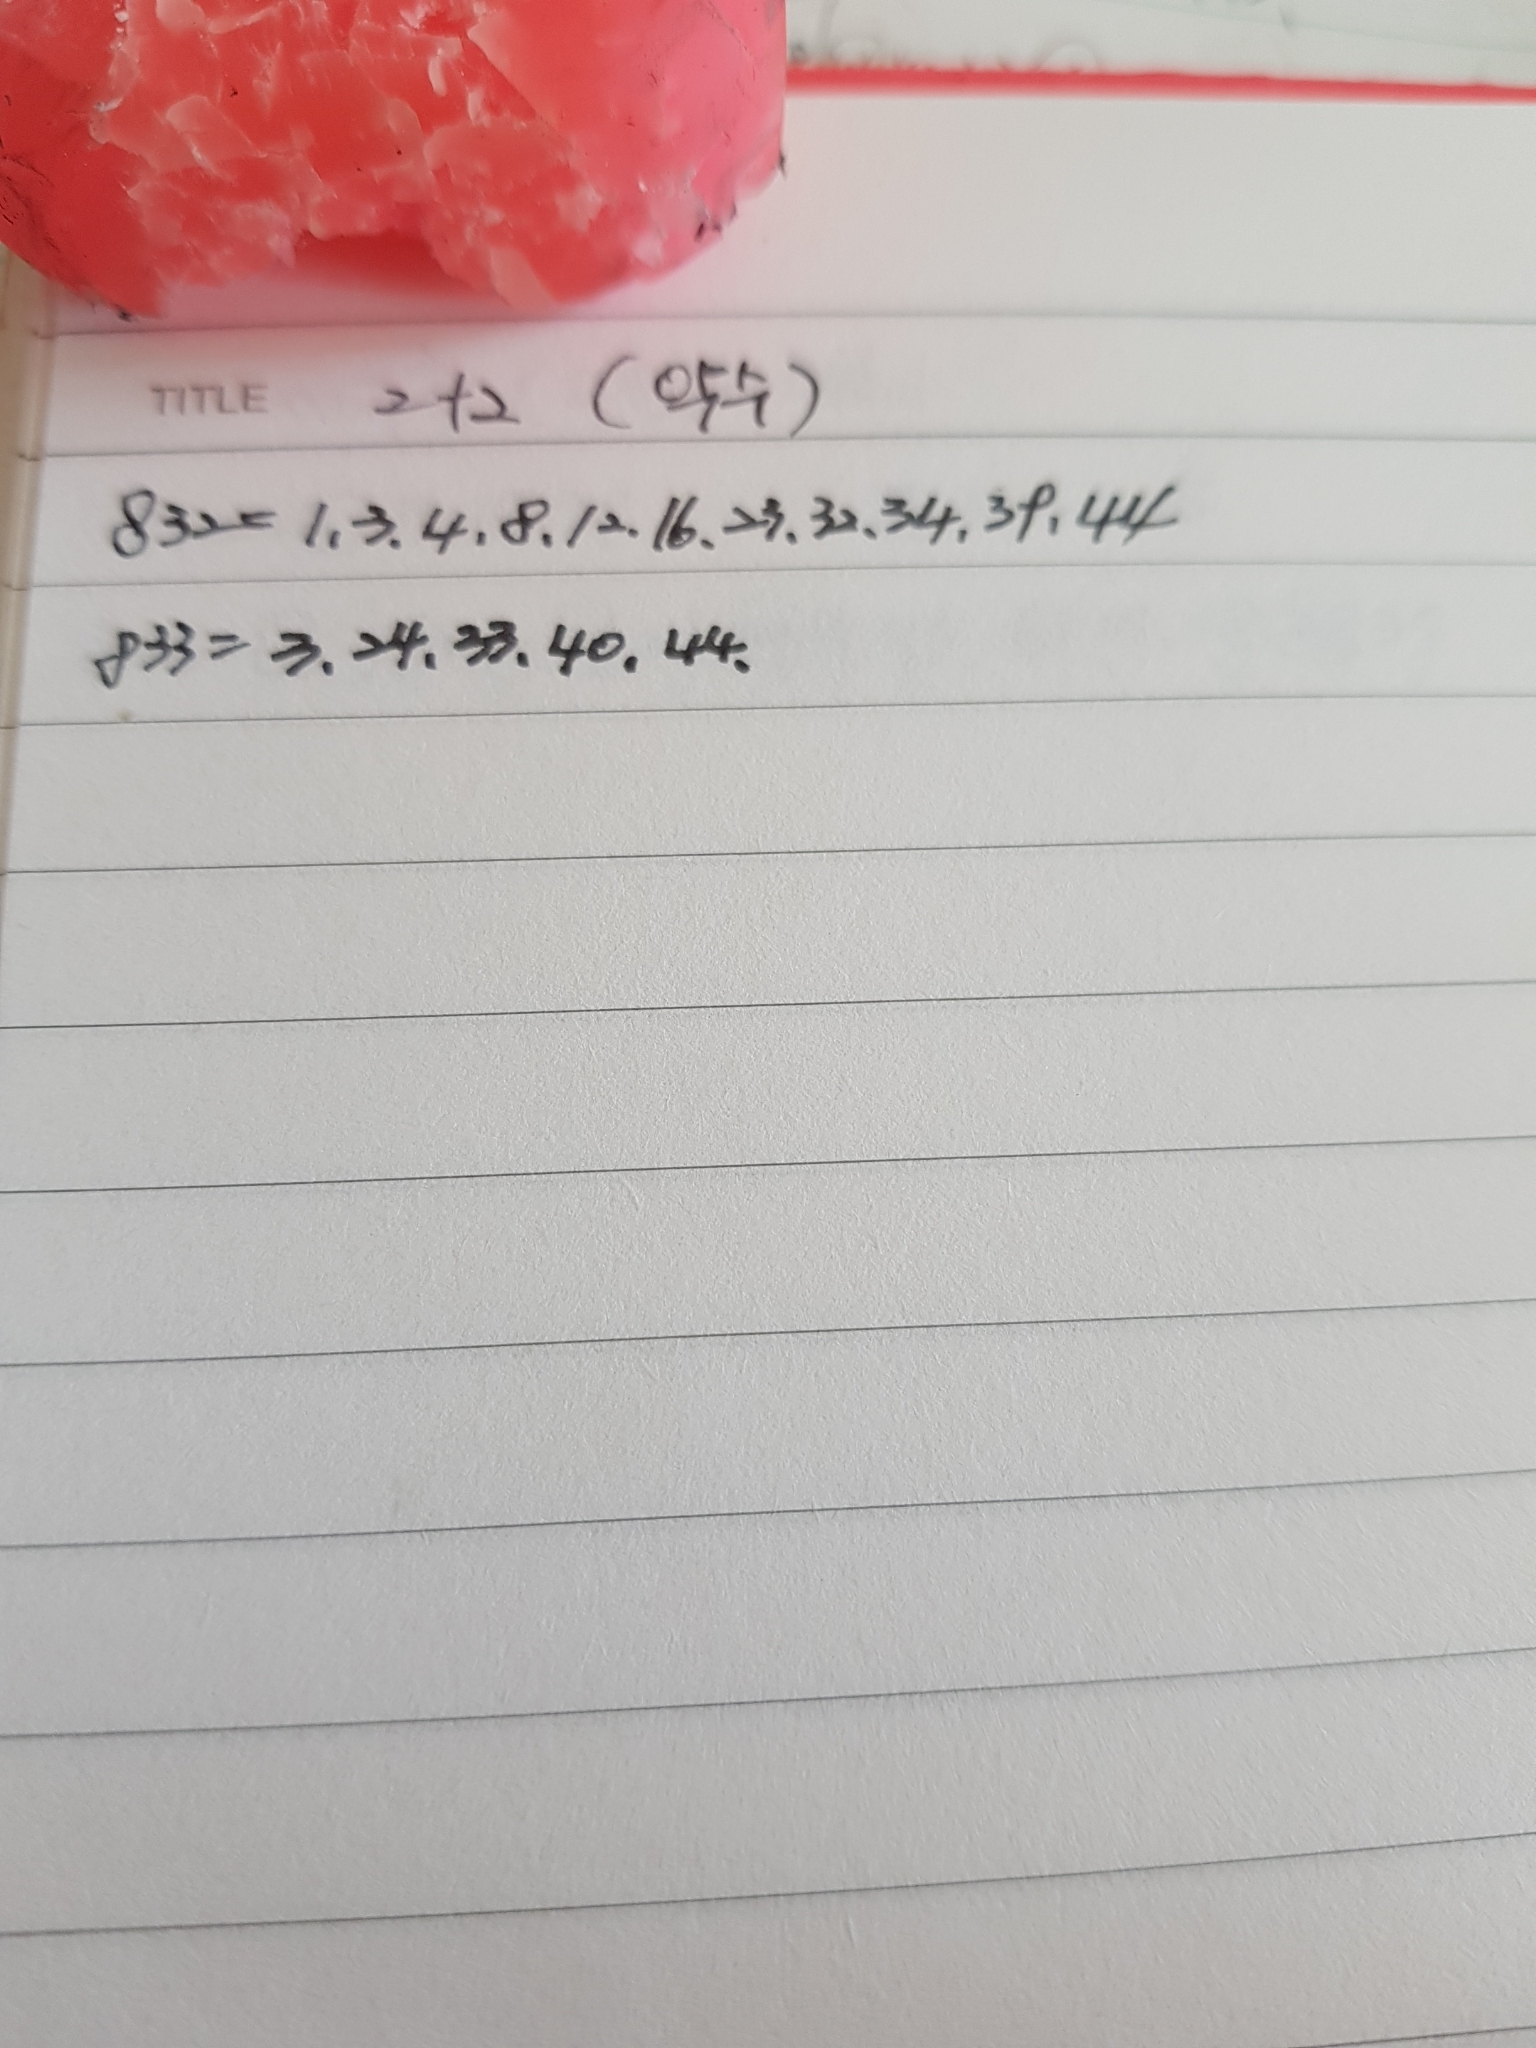 TITLE 2+2 (약수)
832= 1.3.4.8.12.16.23.32.34.39.44
833= 3.24.33.40.44.